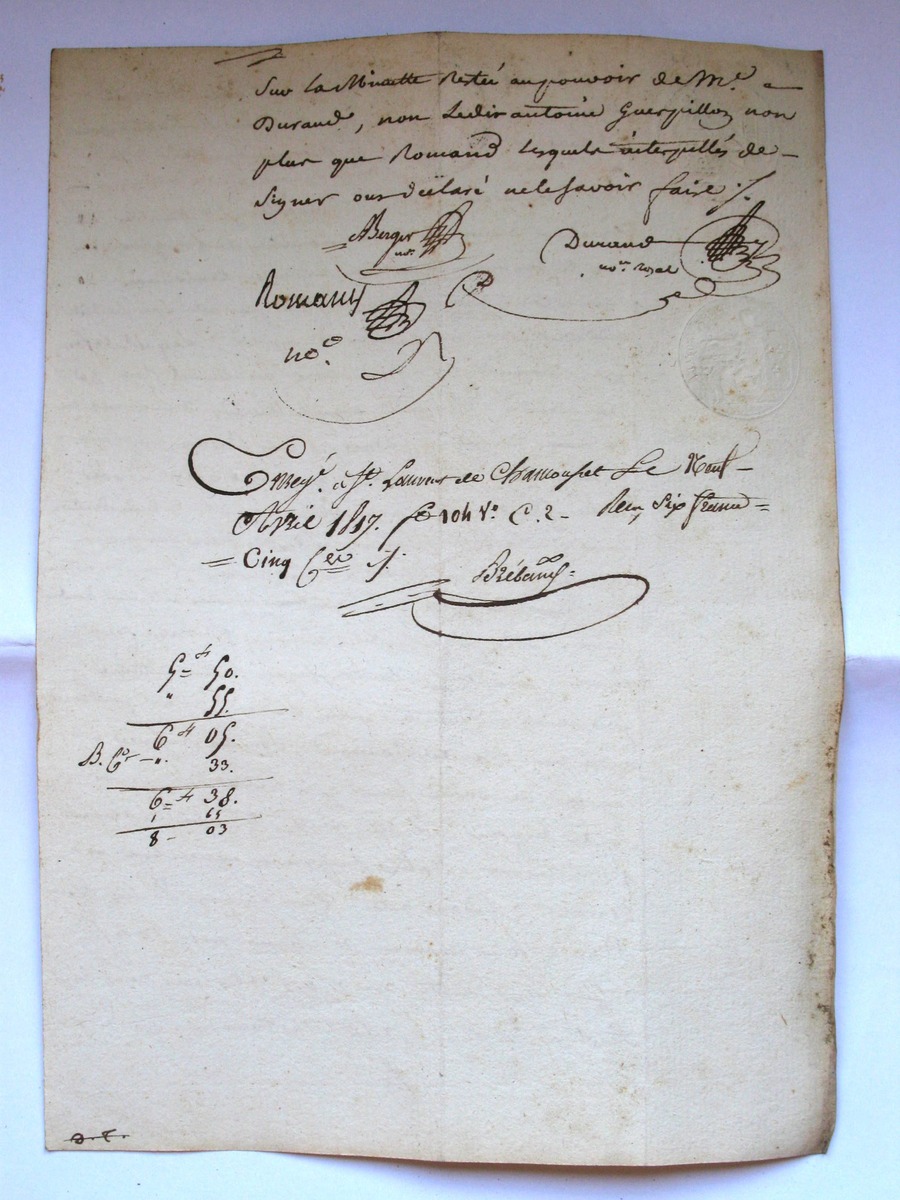 Sur la Minutte Restée au pouvoir de Me
Durand, non Ledit antoine Guerpillon non
plus que Romand lesquels interpellés de
Signer ont déclaré ne le Savoir faire ./.
Berger
nore
Durand
nore Royal
Romand
noe
Enregé. a St. Laurent de Chamousset Le Neuf
Avril 1817. fo 104 Vo. C. 2 Reçu Six francs
Cinq Ces ./.
Rébaud
5 = f 50.
" 55.
6 f 05.
B. ". 33.
6 = f 38.
1 65
8 - 03